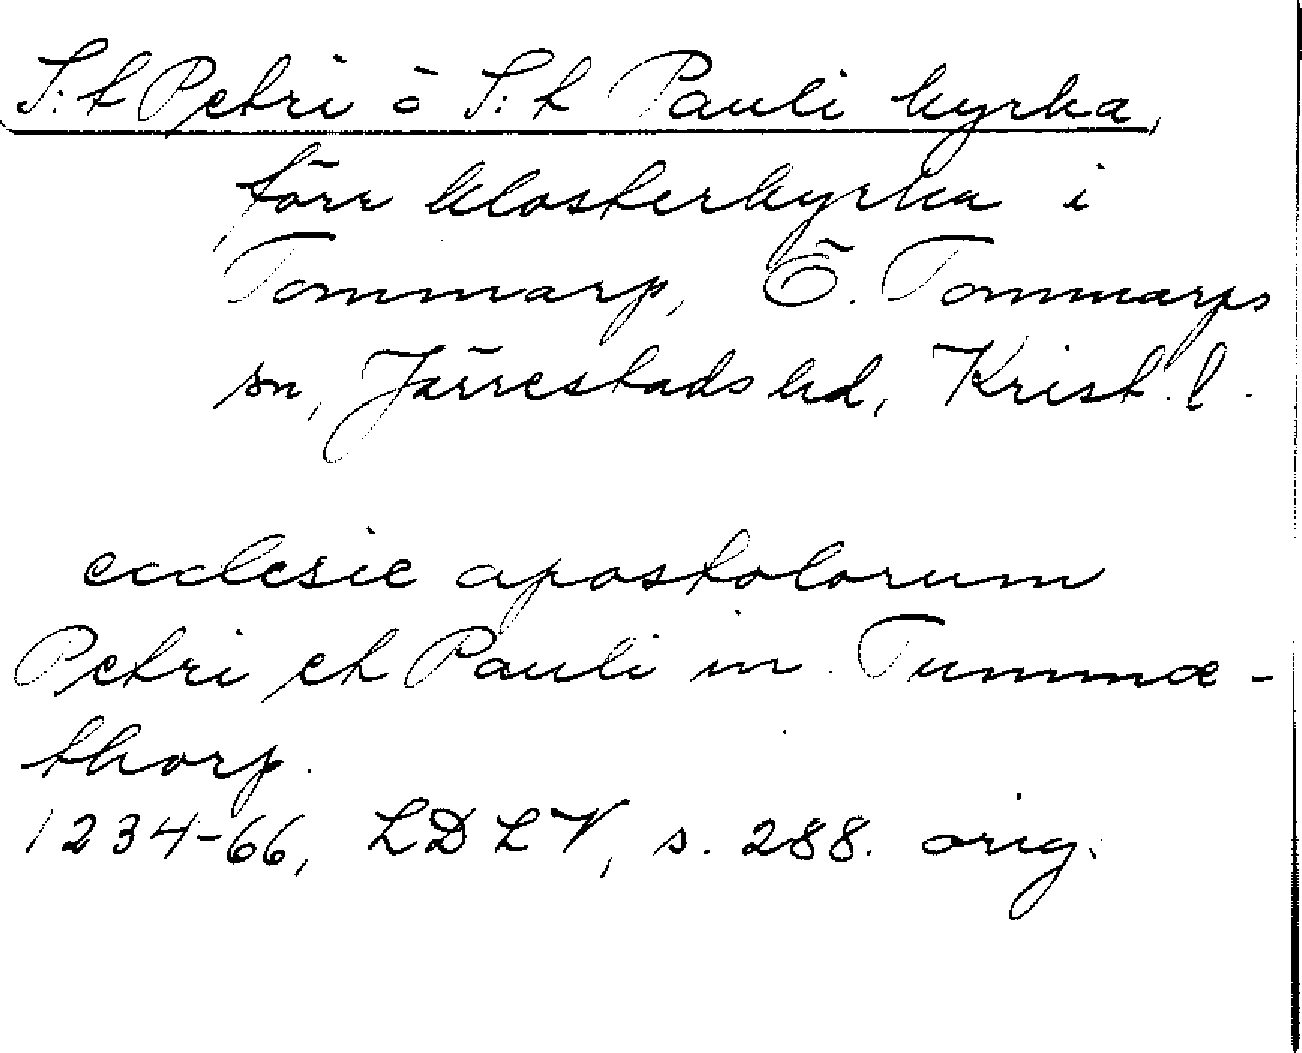 S:t Petri o S:t Pauli kyrka,
förr klosterkyrka i
Tommarp, Ö. Tommarps
sn, Järrestads hd, Krist. l.
ecclesie apostolorum
Petri et Pauli in Tummæ-
thorp.
1234-66, LDLV, s. 288. orig.